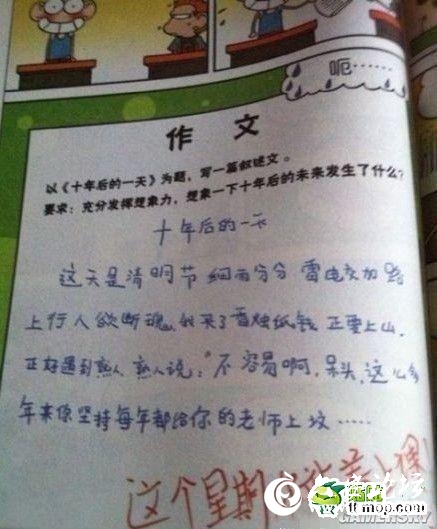 呃……
作文
以《十年后的一天》为题，写一篇叙述文。
要求：充分发挥想象力，想象一下十年后的未来发生了什么？
十年后的一天
这天是清明节 细雨分分 雷电交加 路
上行人欲断魂，我买了香烛纸钱 正要上山，
正好遇到熟人，熟人说：“不容易啊，呆头，这么多
年来你坚持每年都给你的老师上坟……
这个星期
tt mop.com
GAMERSKY